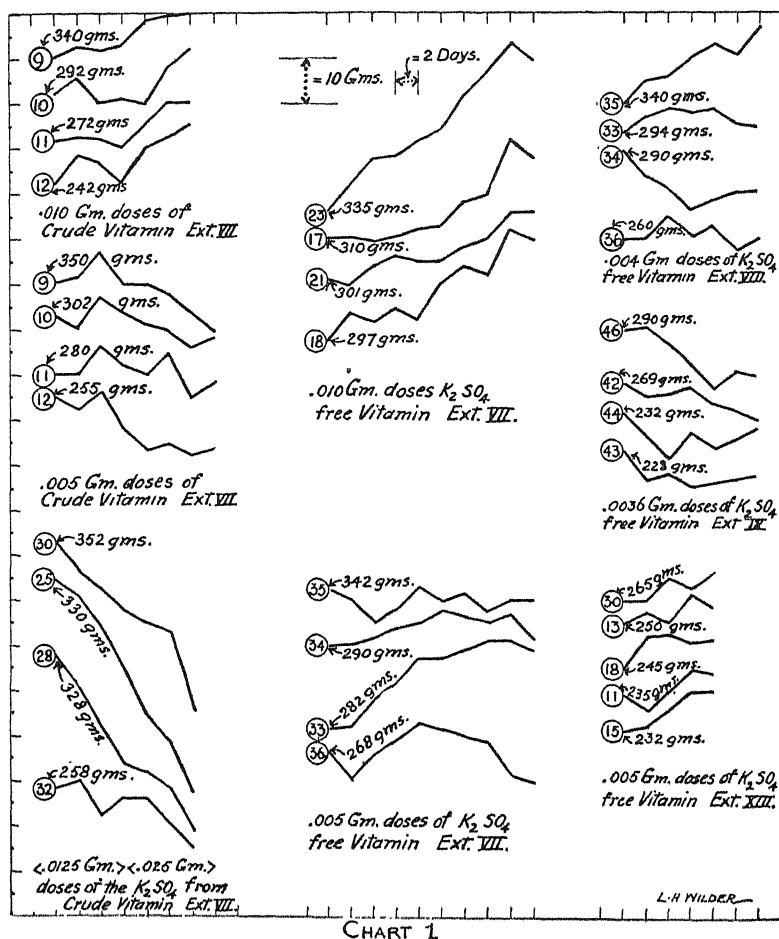 9 340 gms.
10 292 gms.
11 272 gms.
12 242 gms
.010 Gm. doses of
Crude Vitamin Ext. VII.
9 350 gms.
10 302 gms.
11 280 gms.
12 255 gms.
.005 Gm. doses of
Crude Vitamin Ext. VII.
30 352 gms.
25 330 gms.
28 328 gms.
32 258 gms.
<.0125 Gm.> <.025 Gm.>
doses of the K2SO4 from
Crude Vitamin Ext. VII.
= 10 Gms.
= 2 Days.
23 335 gms.
17 310 gms.
21 301 gms.
18 297 gms.
.010 Gm. doses K2SO4
free Vitamin Ext. VII.
35 342 gms.
34 290 gms.
33 282 gms.
36 268 gms.
.005 Gm. doses of K2SO4
free Vitamin Ext. VII.
35 340 gms.
33 294 gms.
34 290 gms.
36 260 gms.
.004 Gm doses of K2SO4
free Vitamin Ext. VIII.
46 290 gms.
42 269 gms.
44 232 gms.
43 228 gms.
.0036 Gm. doses of K2SO4
free Vitamin Ext IX
30 265 gms.
13 250 gms.
18 245 gms.
11 235 gms.
15 232 gms.
.005 Gm. doses of K2SO4
free Vitamin Ext. XIII.
L. H WILDER
CHART 1